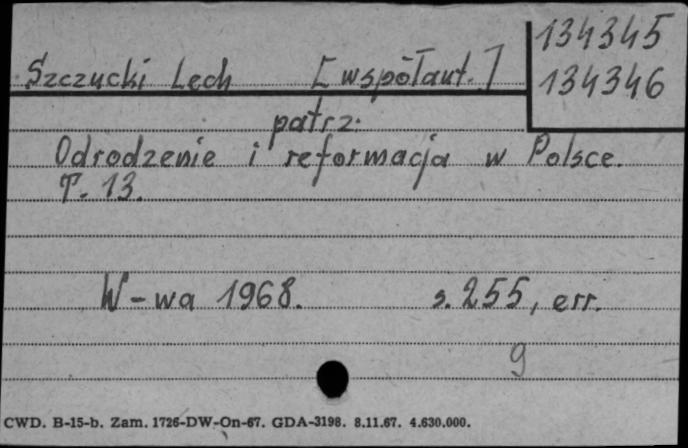 134345
Szczucki Lech [współaut.]
134346
patrz:
Odrodzenie i reformacja w Polsce.
T. 13.
W-wa 1968. s. 255, err.
9
CWD. B-15-b. Zam. 1726-DW-On-67. GDA-3198. 8.11.67. 4.630.000.